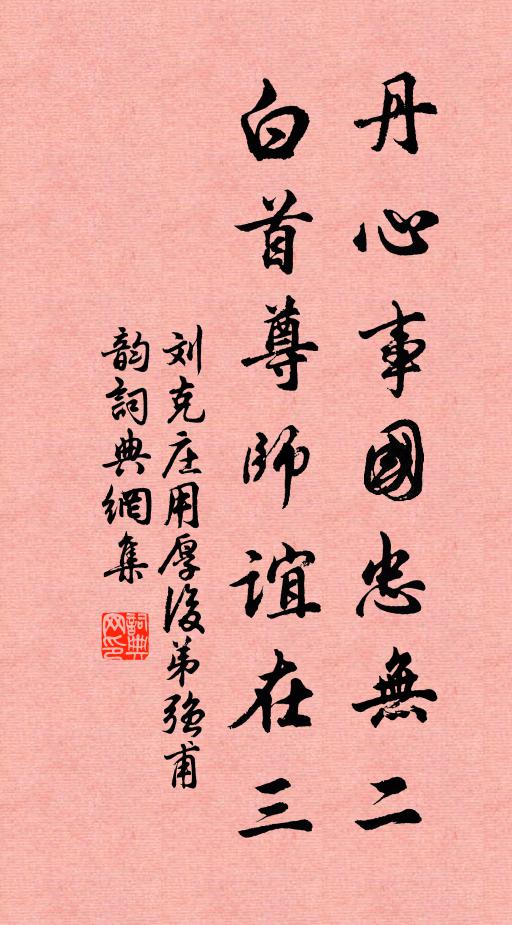 丹心事國忠無二
白首尊師誼在三
刘克庄用厚後弟强甫
韵詞典網集
詞典網印